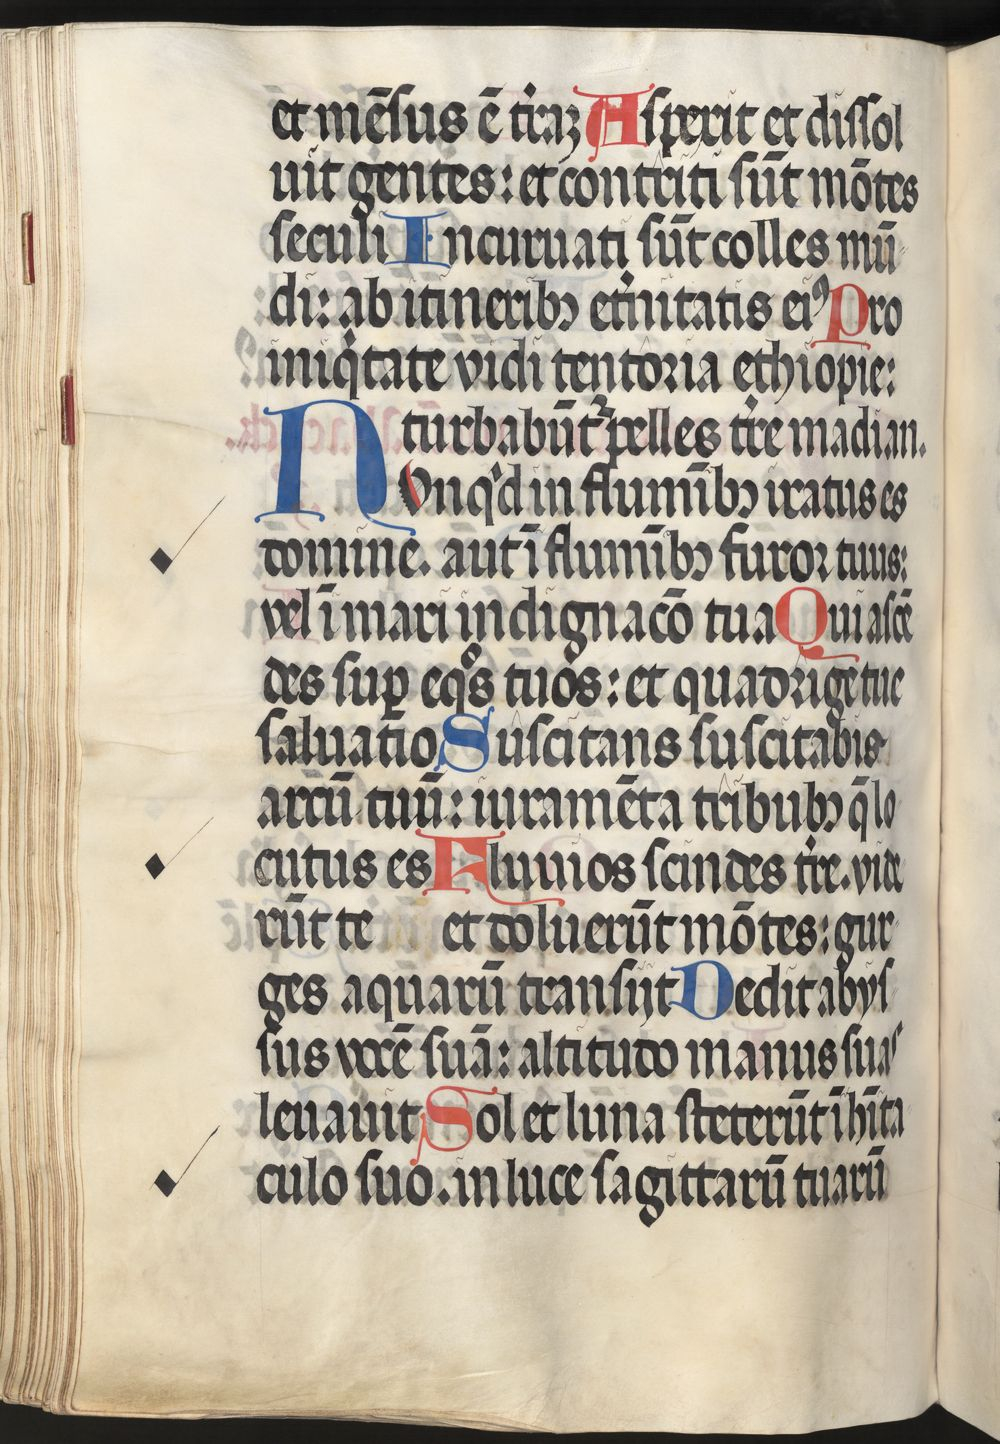 et mēsus ē t̓raꝫ Asperit et dissol
uit gentes: et contriti sūt mōtes
seculi Incuruati sūt colles mū
di: ab itineribꝫ et̓nitatis eiꝰ Pro
iniq̓tate vidi tentoria ethiopie:
turbabūt̓ pelles t̓re madian.
Nunq̓d in flumībꝫ iratus es
domine. aut ī flumībꝫ furor tuus:
vel ī mari indignacō tua Qui ascē
des suꝑ eqͦs tuos: et quadrige tue
saluatio Suscitans suscitabis
arcū tuū: iuramēta tribubꝫ q̄ lo
cutus es Fluuios scindes t̓re. vide
rūt te et doluerūt mōtes: gur
ges aquarū transijt Dedit abys
sus vocē suā: altitudo manus suas
leuauit Sol et luna steterūt ī hīta
culo suo. in luce sagittarū tuarū